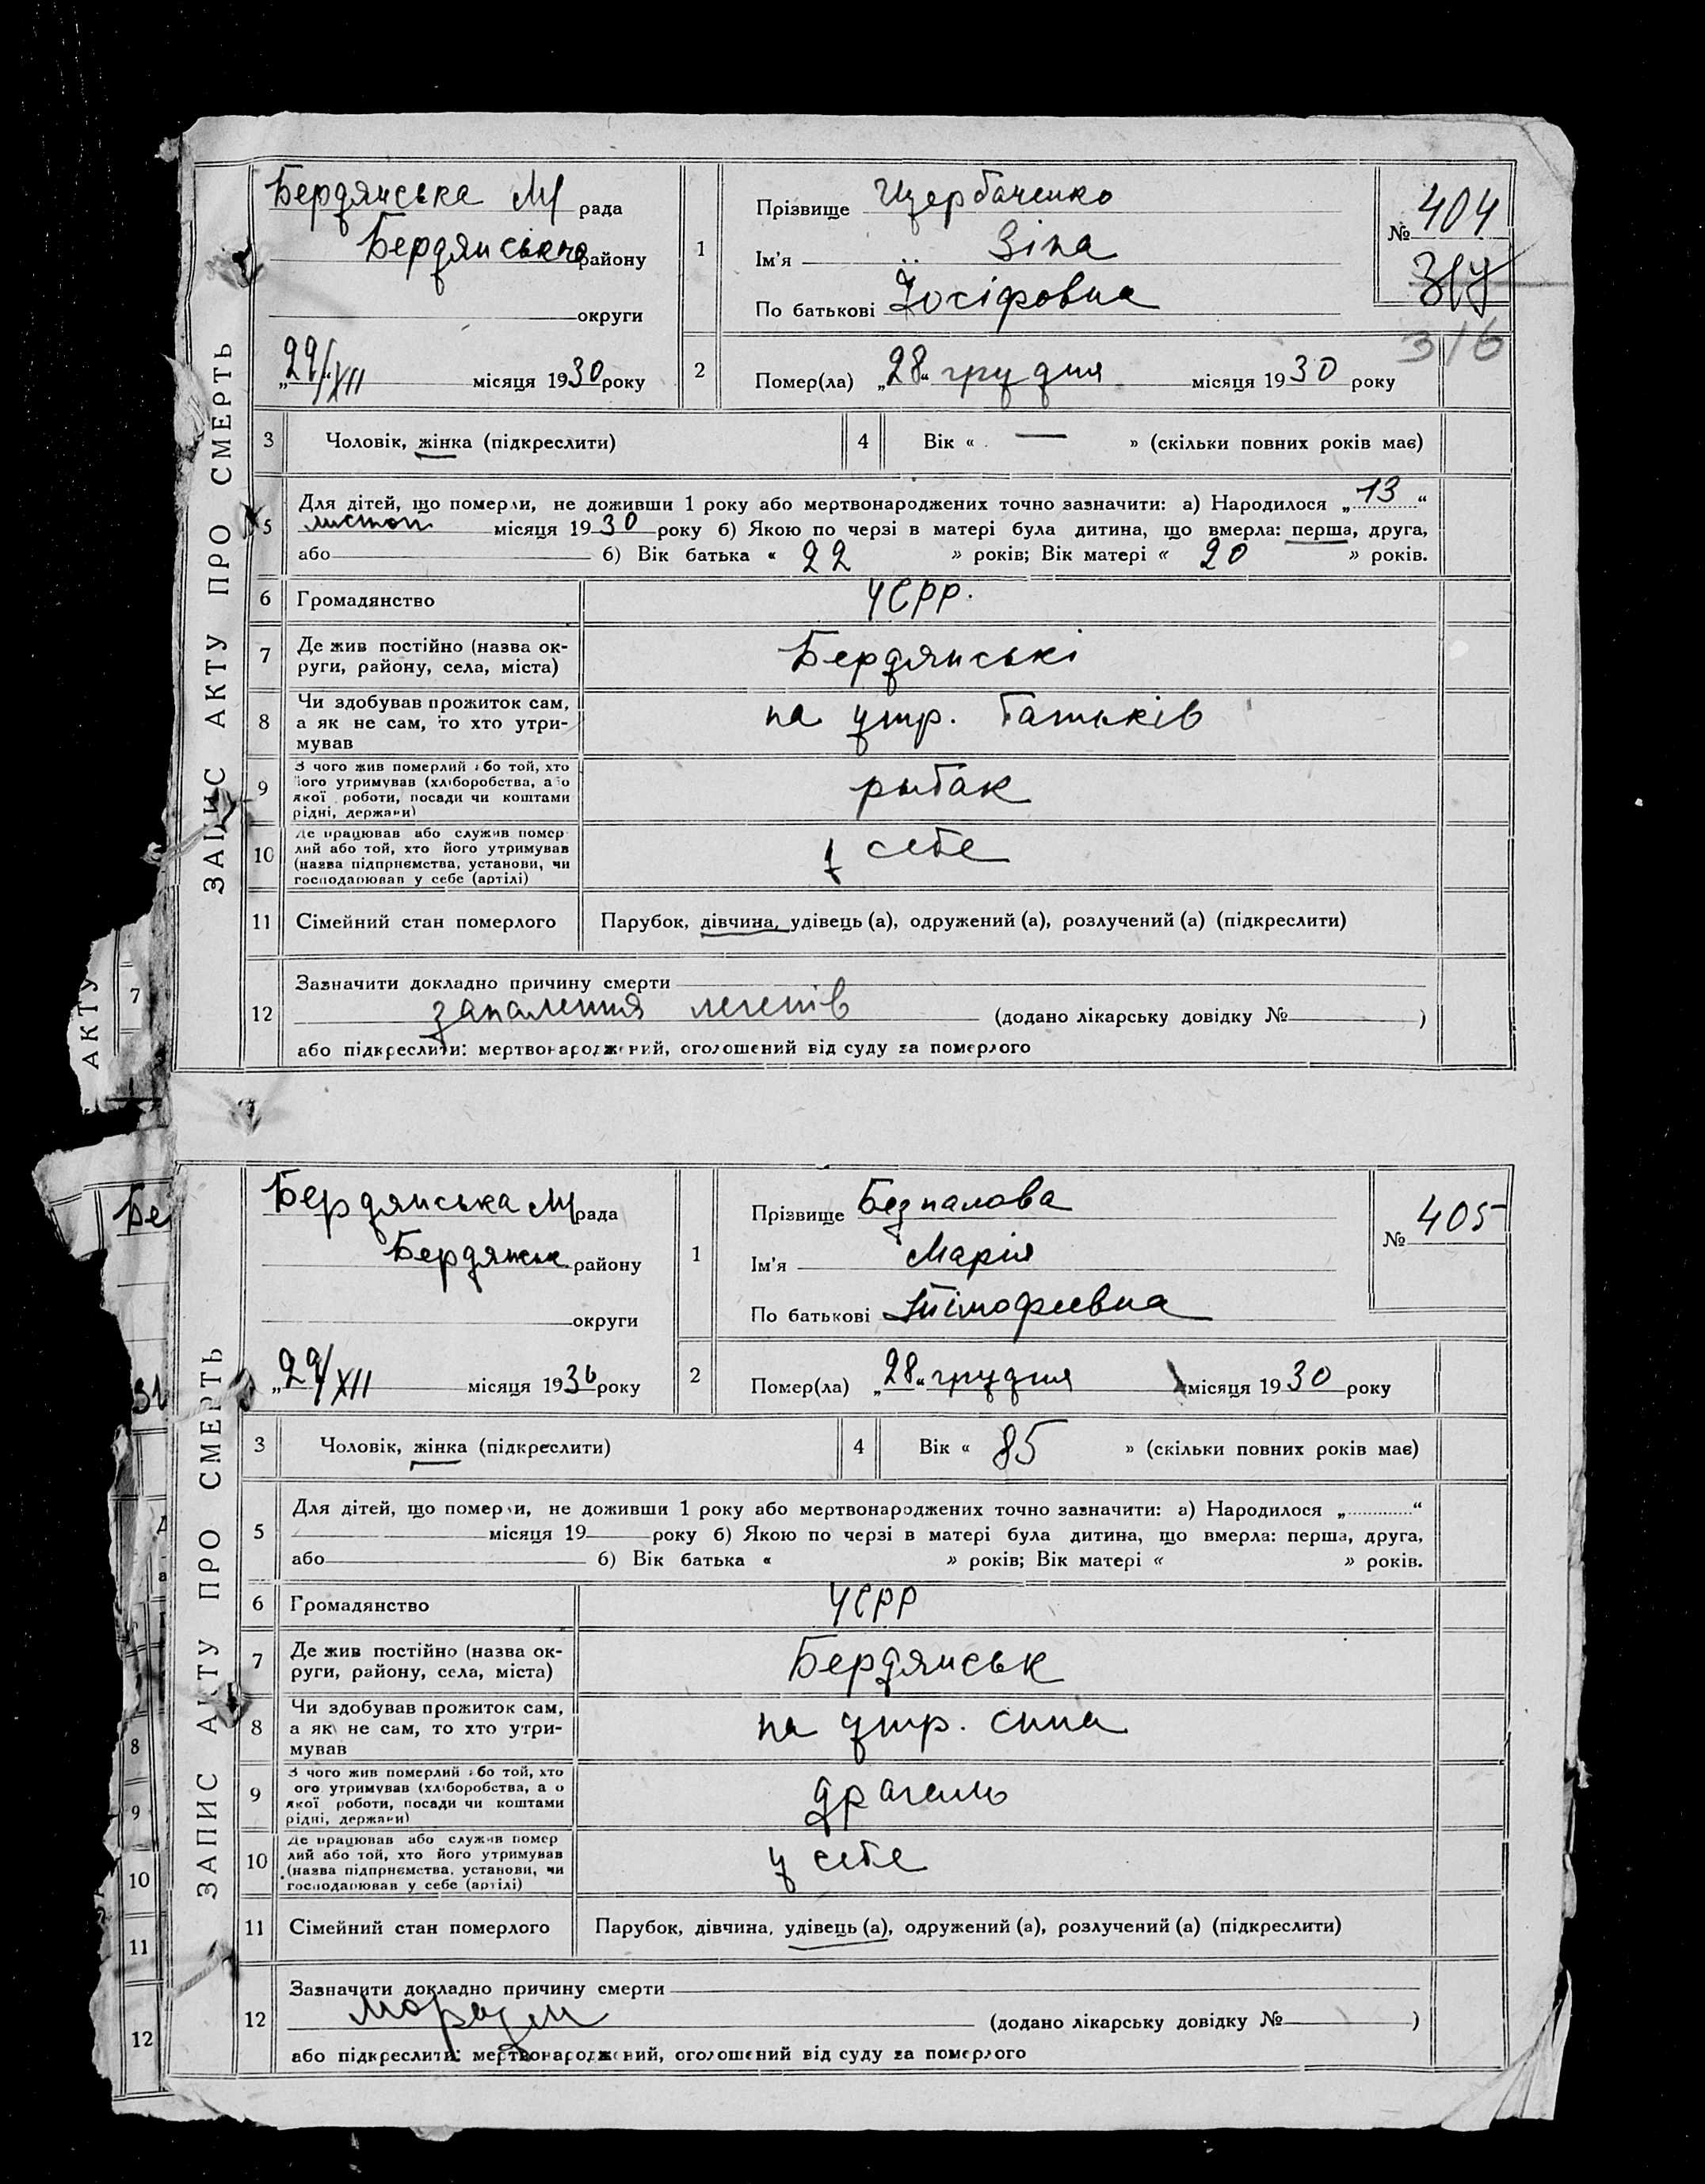 ЗАПИС АКТУ ПРО СМЕРТЬ
Бердянська М/ рада
Бердянського району
округи
„29/XII місяця 1930 року
1
Прізвище Щербаченко
Ім'я Зіна
По батькові Йосіфовна
№ 404
316
2
Помер(ла) „28“ грудня місяця 1930 року
3 Чоловік, жінка (підкреслити)
4 Вік « — » (скільки повних років має)
5 Для дітей, що померли, не доживши 1 року або мертвонароджених точно зазначити: а) Народилося „13“
листоп місяця 1930 року б) Якою по черзі в матері була дитина, що вмерла: перша, друга,
або б) Вік батька « 22 » років; Вік матері « 20 » років.
6 Громадянство УСРР.
7 Де жив постійно (назва ок-
руги, району, села, міста)
Бердянські
8 Чи здобував прожиток сам,
а як не сам, то хто утри-
мував
на утр. батьків
9 З чого жив померлий або той, хто
його утримував (хліборобства, або
якої роботи, посади чи коштами
рідні, держави)
рыбак
10 Де працював або служив помер
лий або той, хто його утримував
(назва підприємства, установи, чи
господарював у себе (артілі)
у себе
11 Сімейний стан померлого Парубок, дівчина, удівець (а), одружений (а), розлучений (а) (підкреслити)
12 Зазначити докладно причину смерти
запалення легенів (додано лікарську довідку № )
або підкреслити: мертвонароджений, оголошений від суду за померлого
АКТУ
7
ЗАПИС АКТУ ПРО СМЕРТЬ
Бердянська М/ рада
Бердянськ. району
округи
„29/XII місяця 1930 року
1
Прізвище Безпалова
Ім'я Марія
По батькові Тімофеевна
№ 405
2
Помер(ла) „28“ грудня місяця 1930 року
3 Чоловік, жінка (підкреслити)
4 Вік « 85 » (скільки повних років має)
5 Для дітей, що померли, не доживши 1 року або мертвонароджених точно зазначити: а) Народилося „ “
місяця 19 року б) Якою по черзі в матері була дитина, що вмерла: перша, друга,
або б) Вік батька « » років; Вік матері « » років.
6 Громадянство УСРР
7 Де жив постійно (назва ок-
руги, району, села, міста)
Бердянськ
8 Чи здобував прожиток сам,
а як не сам, то хто утри-
мував
на утр. сина
9 З чого жив померлий або той, хто
ого утримував (хліборобства, а о
якої роботи, посади чи коштами
рідні, держави)
драгель
10 Де працював або служив помер
лий або той, хто його утримував
(назва підприємства, установи, чи
господарював у себе (артілі)
у себе
11 Сімейний стан померлого Парубок, дівчина, удівець (а), одружений (а), розлучений (а) (підкреслити)
12 Зазначити докладно причину смерти
моразм (додано лікарську довідку № )
або підкреслити: мертвонароджений, оголошений від суду за померлого
Бер
8
9
10
11
12